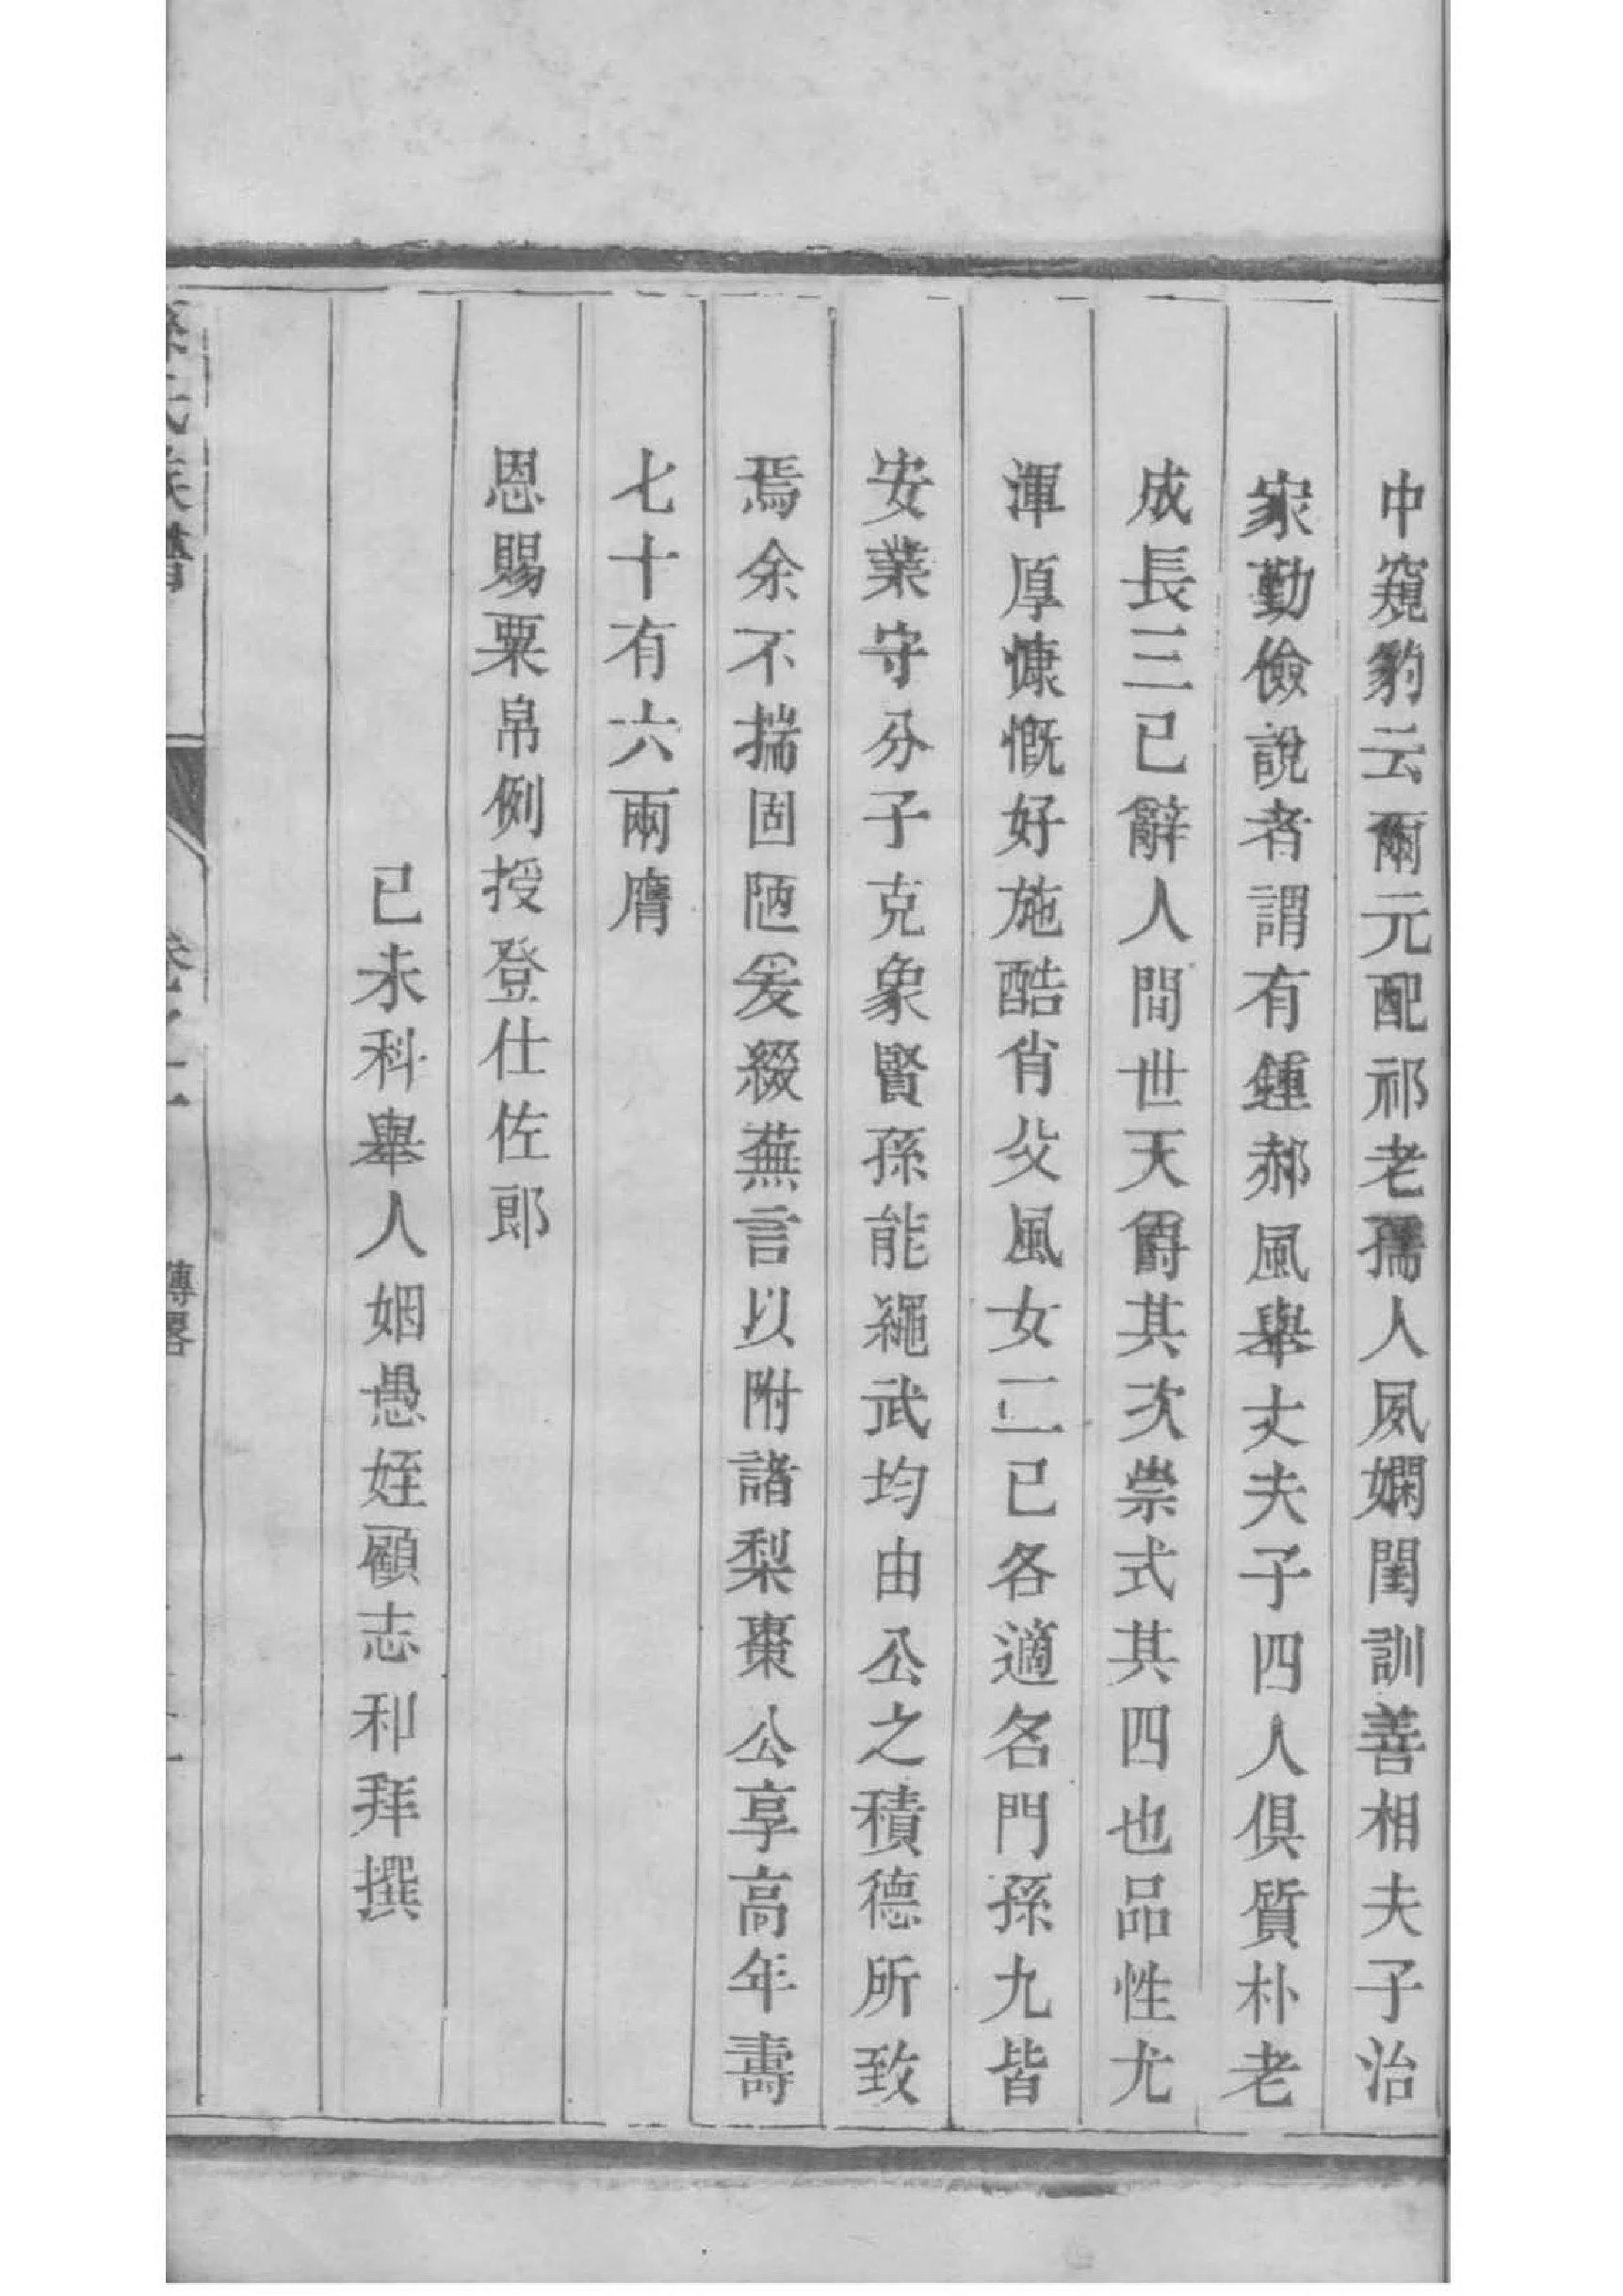 中窺豹云爾元配祁老孺人夙嫻閨訓善相夫子治
家勤儉說者謂有鍾郝風舉丈夫子四人俱質朴老
成長三已辭人間世天爵其次崇式其四也品性尤
渾厚慷慨好施酷肖父風女二已各適名門孫九皆
安業守分子克象賢孫能繩武均由公之積德所致
焉余不揣固陋爰綴蕪言以附諸梨棗公享高年壽
七十有六兩膺
恩賜粟帛例授登仕佐郎
已未科舉人姻愚姪顧志和拜撰
氏族譜
卷之
傳畧